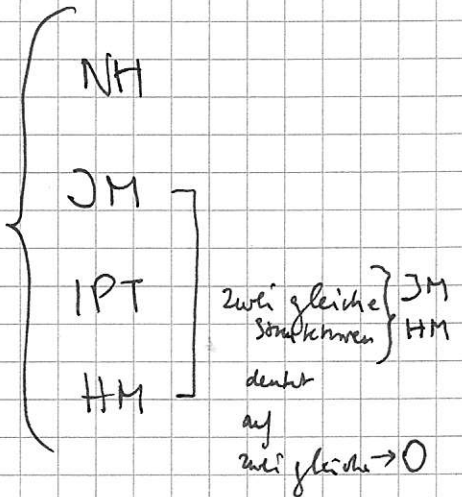 NH
JM
IPT
HM
zwei gleiche } JM
Strukturen } HM
deutet
auf
zwei gleiche → O